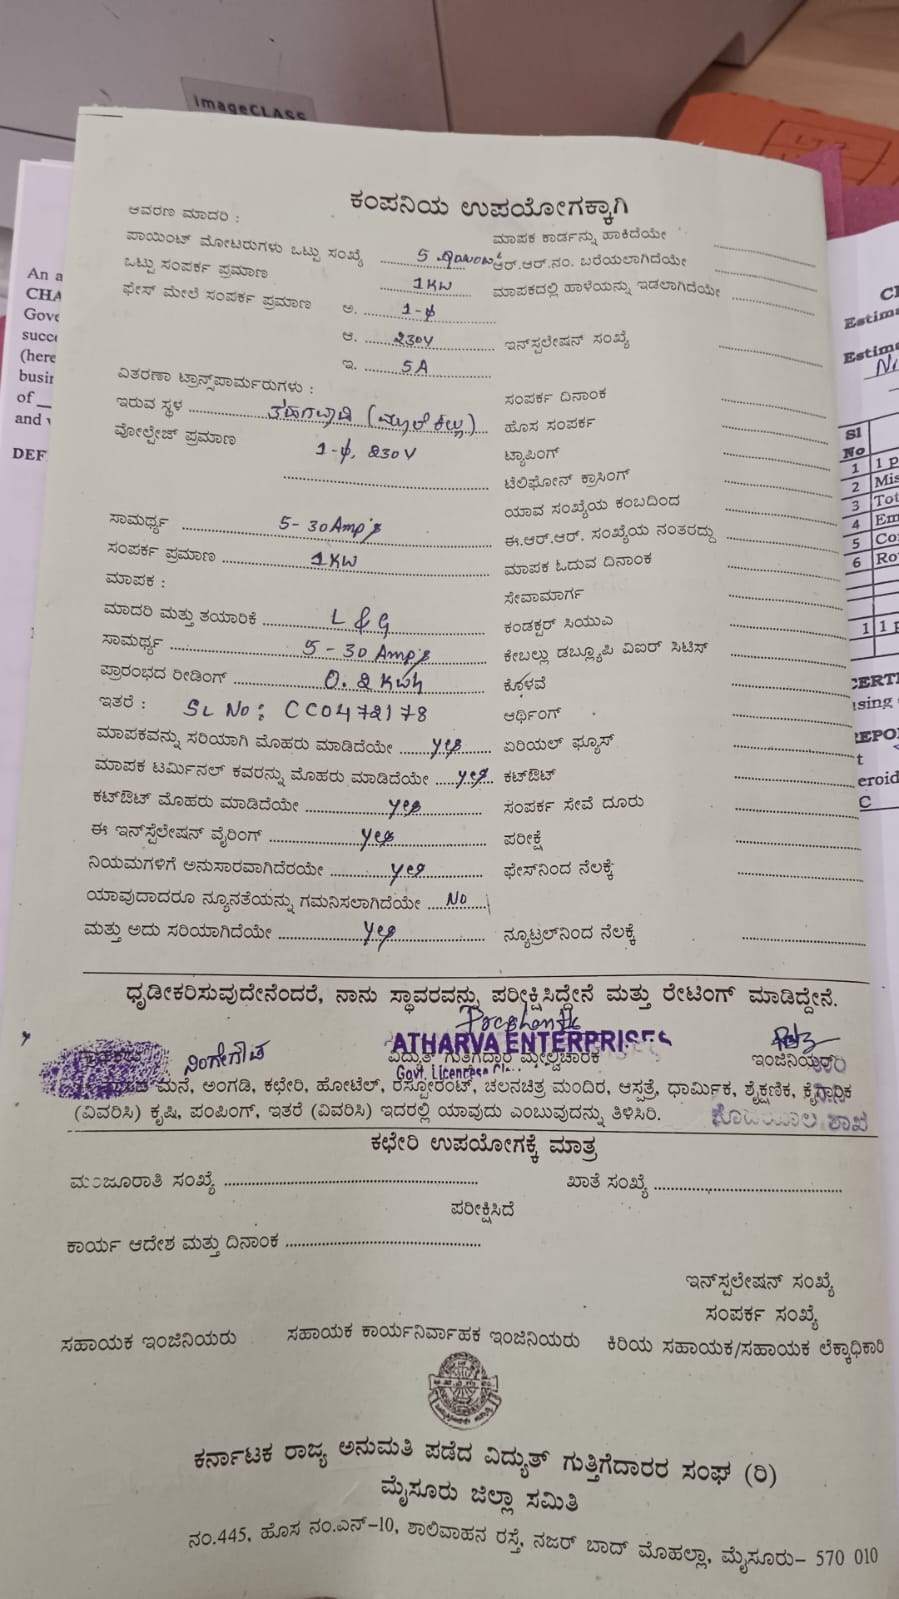 imageCLASS
ಕಂಪನಿಯ ಉಪಯೋಗಕ್ಕಾಗಿ
ಆವರಣ ಮಾದರಿ :
ಪಾಯಿಂಟ್ ಮೋಟರುಗಳು ಒಟ್ಟು ಸಂಖ್ಯೆ 5
ಒಟ್ಟು ಸಂಪರ್ಕ ಪ್ರಮಾಣ 1KW
ಫೇಸ್ ಮೇಲೆ ಸಂಪರ್ಕ ಪ್ರಮಾಣ ಅ. 1-ϕ
ಆ. 230V
ಇ. 5A
ವಿತರಣಾ ಟ್ರಾನ್ಸ್‌ಪಾರ್ಮರುಗಳು :
ಇರುವ ಸ್ಥಳ
ವೋಲ್ಟೇಜ್ ಪ್ರಮಾಣ 1-ϕ, 230V
ಸಾಮರ್ಥ್ಯ 5-30Amp's
ಸಂಪರ್ಕ ಪ್ರಮಾಣ 1KW
ಮಾಪಕ :
ಮಾದರಿ ಮತ್ತು ತಯಾರಿಕೆ L & G
ಸಾಮರ್ಥ್ಯ 5-30 Amp's
ಪ್ರಾರಂಭದ ರೀಡಿಂಗ್ 0.2 Kwh
ಇತರೆ : SL No: CC0472178
ಮಾಪಕವನ್ನು ಸರಿಯಾಗಿ ಮೊಹರು ಮಾಡಿದೆಯೇ yes
ಮಾಪಕ ಟರ್ಮಿನಲ್ ಕವರನ್ನು ಮೊಹರು ಮಾಡಿದೆಯೇ yes
ಕಟ್‌ಔಟ್ ಮೊಹರು ಮಾಡಿದೆಯೇ yes
ಈ ಇನ್‌ಸ್ಟೆಲೇಷನ್ ವೈರಿಂಗ್ yes
ನಿಯಮಗಳಿಗೆ ಅನುಸಾರವಾಗಿದೆರಯೇ yes
ಯಾವುದಾದರೂ ನ್ಯೂನತೆಯನ್ನು ಗಮನಿಸಲಾಗಿದೆಯೇ No
ಮತ್ತು ಅದು ಸರಿಯಾಗಿದೆಯೇ yes
ಮಾಪಕ ಕಾರ್ಡನ್ನು ಹಾಕಿದೆಯೇ
ಆರ್.ಆರ್.ನಂ. ಬರೆಯಲಾಗಿದೆಯೇ
ಮಾಪಕದಲ್ಲಿ ಹಾಳೆಯನ್ನು ಇಡಲಾಗಿದೆಯೇ
ಇನ್‌ಸ್ಟಲೇಷನ್ ಸಂಖ್ಯೆ
ಸಂಪರ್ಕ ದಿನಾಂಕ
ಹೊಸ ಸಂಪರ್ಕ
ಟ್ಯಾಪಿಂಗ್
ಟೆಲಿಫೋನ್ ಕ್ರಾಸಿಂಗ್
ಯಾವ ಸಂಖ್ಯೆಯ ಕಂಬದಿಂದ
ಈ.ಆರ್.ಆರ್. ಸಂಖ್ಯೆಯ ನಂತರದ್ದು
ಮಾಪಕ ಓದುವ ದಿನಾಂಕ
ಸೇವಾಮಾರ್ಗ
ಕಂಡಕ್ಟರ್ ಸಿಯುಎ
ಕೇಬಲ್ಲು ಡಬ್ಲ್ಯೂಪಿ ವಿಐರ್ ಸಿಟಿಸ್
ಕೊಳವೆ
ಆರ್ಥಿಂಗ್
ಏರಿಯಲ್ ಫ್ಯೂಸ್
ಕಟ್‌ಔಟ್
ಸಂಪರ್ಕ ಸೇವೆ ದೂರು
ಪರೀಕ್ಷೆ
ಫೇಸ್‌ನಿಂದ ನೆಲಕ್ಕೆ
ನ್ಯೂಟ್ರಲ್‌ನಿಂದ ನೆಲಕ್ಕೆ
ಧೃಡೀಕರಿಸುವುದೇನೆಂದರೆ, ನಾನು ಸ್ಥಾವರವನ್ನು ಪರೀಕ್ಷಿಸಿದ್ದೇನೆ ಮತ್ತು ರೇಟಿಂಗ್ ಮಾಡಿದ್ದೇನೆ.
ನಿಂಗೇಗೌಡ
ATHARVA ENTERPRISES
ವಿದ್ಯುತ್ ಗುತ್ತಿಗೆದಾರ ಮೇಲ್ವಿಚಾರಕ ಇಂಜಿನಿಯರ್
ಮನೆ, ಅಂಗಡಿ, ಕಛೇರಿ, ಹೋಟೆಲ್, ರೆಸ್ಟೋರೆಂಟ್, ಚಲನಚಿತ್ರ ಮಂದಿರ, ಆಸ್ಪತ್ರೆ, ಧಾರ್ಮಿಕ, ಶೈಕ್ಷಣಿಕ, ಕೈಗಾರಿಕ
(ವಿವರಿಸಿ) ಕೃಷಿ, ಪಂಪಿಂಗ್, ಇತರೆ (ವಿವರಿಸಿ) ಇದರಲ್ಲಿ ಯಾವುದು ಎಂಬುವುದನ್ನು ತಿಳಿಸಿರಿ.
ಶಾಖೆ
ಕಛೇರಿ ಉಪಯೋಗಕ್ಕೆ ಮಾತ್ರ
ಮಂಜೂರಾತಿ ಸಂಖ್ಯೆ ಖಾತೆ ಸಂಖ್ಯೆ
ಪರೀಕ್ಷಿಸಿದೆ
ಕಾರ್ಯ ಆದೇಶ ಮತ್ತು ದಿನಾಂಕ
ಇನ್‌ಸ್ಟಲೇಷನ್ ಸಂಖ್ಯೆ
ಸಂಪರ್ಕ ಸಂಖ್ಯೆ
ಸಹಾಯಕ ಇಂಜಿನಿಯರು ಸಹಾಯಕ ಕಾರ್ಯನಿರ್ವಾಹಕ ಇಂಜಿನಿಯರು ಕಿರಿಯ ಸಹಾಯಕ/ಸಹಾಯಕ ಲೆಕ್ಕಾಧಿಕಾರಿ
ಕರ್ನಾಟಕ ರಾಜ್ಯ ಅನುಮತಿ ಪಡೆದ ವಿದ್ಯುತ್ ಗುತ್ತಿಗೆದಾರರ ಸಂಘ (ರಿ)
ಮೈಸೂರು ಜಿಲ್ಲಾ ಸಮಿತಿ
ನಂ.445, ಹೊಸ ನಂ.ಎನ್-10, ಶಾಲಿವಾಹನ ರಸ್ತೆ, ನಜರ್ ಬಾದ್ ಮೊಹಲ್ಲಾ, ಮೈಸೂರು- 570 010